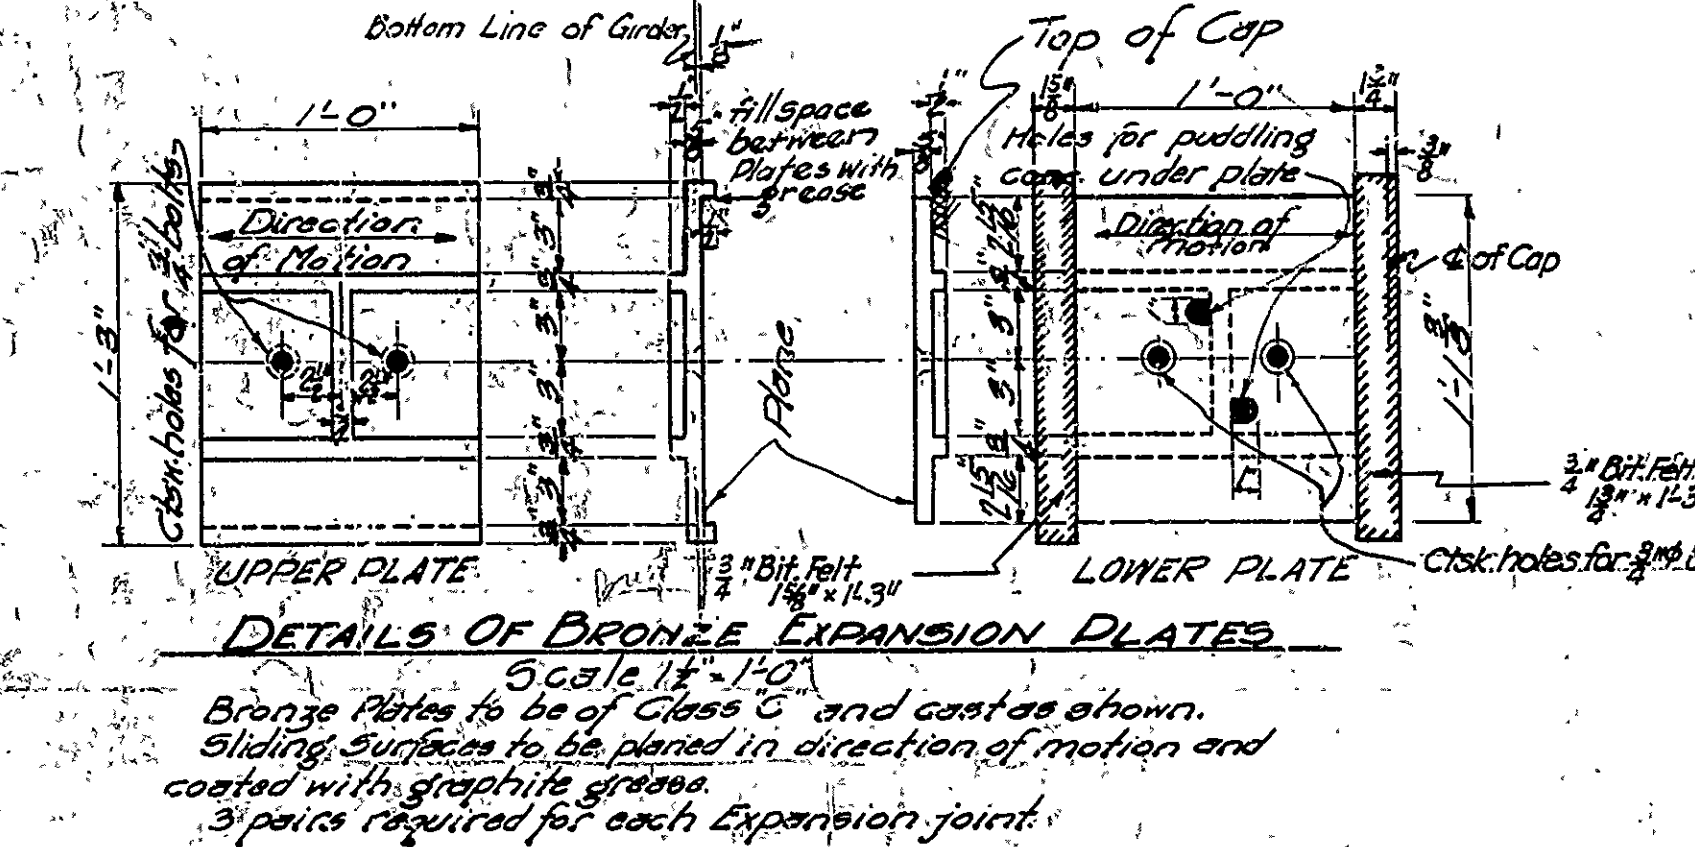 Bottom Line of Girder
1/8"
Top of Cap
1'-0"
1/2"
fill space
between
Plates with
grease
1/2"
1 5/8"
1'-0"
1 3/4"
Holes for puddling
conc. under plate
3/8"
5/8"
Direction
of Motion
Direction of
motion
Ctsk. holes for 3/4" bolts
1'-3"
3/4"
3"
3/4"
3"
3"
3/4"
3"
3/4"
2 1/2"
Plane
2 15/16"
3/4"
3"
3"
3/4"
2 15/16"
℄ of Cap
1'-1 3/8"
3/4" Bit. Felt
1 3/4" x 1'-3
UPPER PLATE
3/4" Bit. Felt
1 5/8" x 1'-3"
LOWER PLATE
Ctsk. holes for 3/4"ϕ b
DETAILS OF BRONZE EXPANSION PLATES
Scale 1 1/2" = 1'-0"
Bronze Plates to be of Class "C" and cast as shown.
Sliding Surfaces to be planed in direction of motion and
coated with graphite grease.
3 pairs required for each Expansion joint.